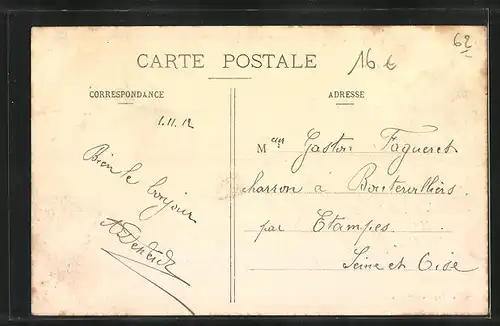 62
16 €
CARTE POSTALE
CORRESPONDANCE
ADRESSE
1.11.12
Mr Gaston Fagueret
charron à Boutervilliers
par Etampes
Seine et Oise
Bien le bonjour